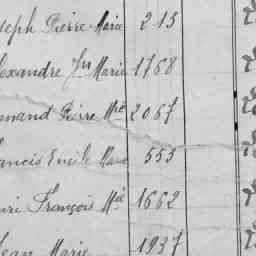 seph Pierre Marie 213
exandre Jn Marie 1768
mand Pierre Mie 2067
ancis Emile Marie 553
nri François Mie 1662
Jean Marie 1937